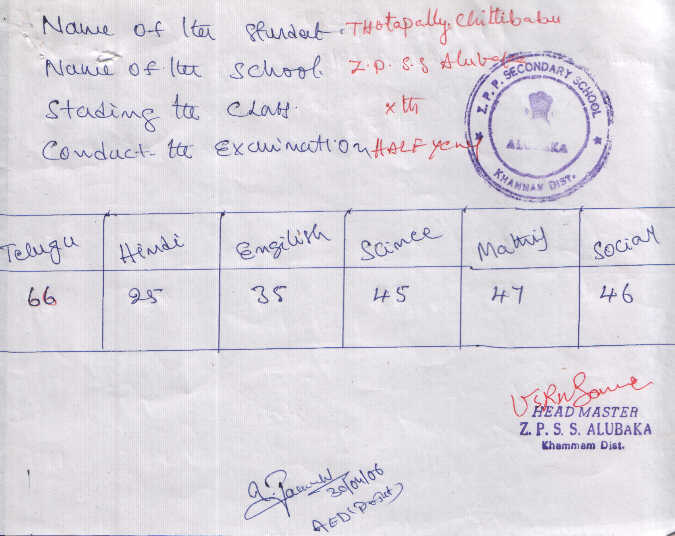 Name of the student. THotapally. Chittibabu
Name of the school. Z.P.S.S Alubaka
Stading the Class. xth
Conduct the Examination HALF yearly
Z.P.P. SECONDARY SCHOOL
ALUBAKA
KHAMMAM DIST.
Telugu Hindi Engilish Scince Maths Social
66 25 35 45 47 46
HEAD MASTER
Z. P. S. S. ALUBAKA
Khammam Dist.
30/04/06